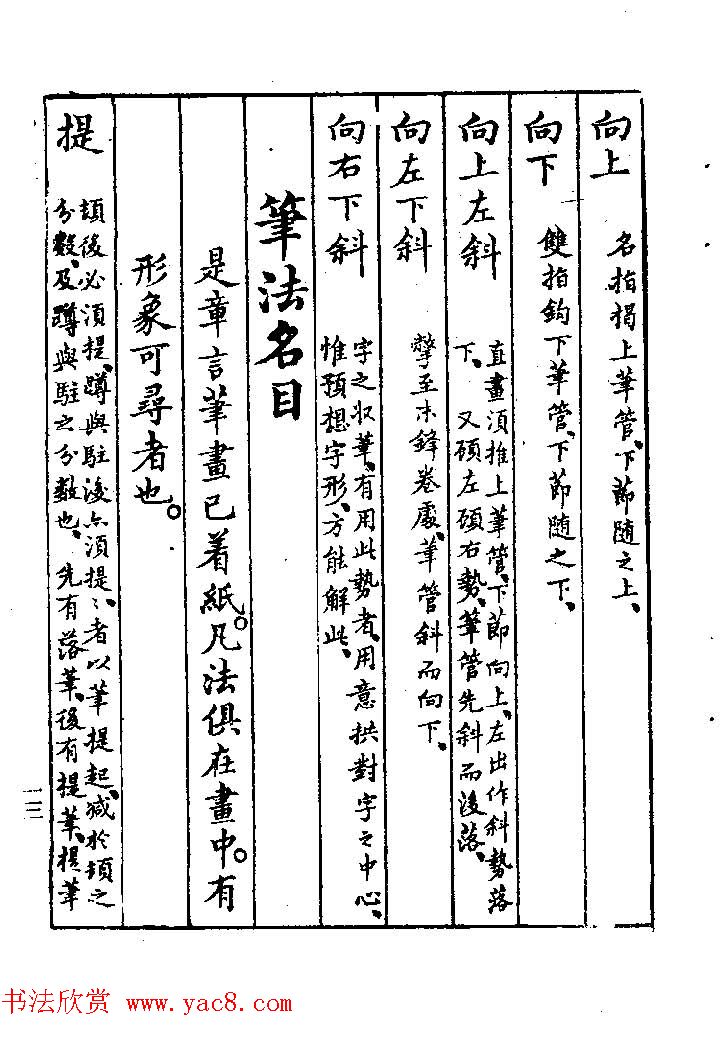 向上 名指揭上筆管、下節隨之上、
向下 雙指鈎下筆管、下節隨之下、
向上左斜 直畫須推上筆管、下節向上、左出作斜勢落
下、又碩左碩右勢、筆管先斜而後落、
向左下斜 撆至末鋒卷處、筆管斜而向下、
向右下斜 字之收筆、有用此勢者、用意拱對字之中心、
惟預想字形、方能解此、
筆法名目
是章言筆畫已着紙。凡法俱在畫中。有
形象可尋者也。
提 頓後必須提、蹲與駐後亦須提、提者以筆提起、減於頓之
分數、及蹲與駐之分數也、先有落筆、後有提筆、提筆
一三
书法欣赏 www.yac8.com